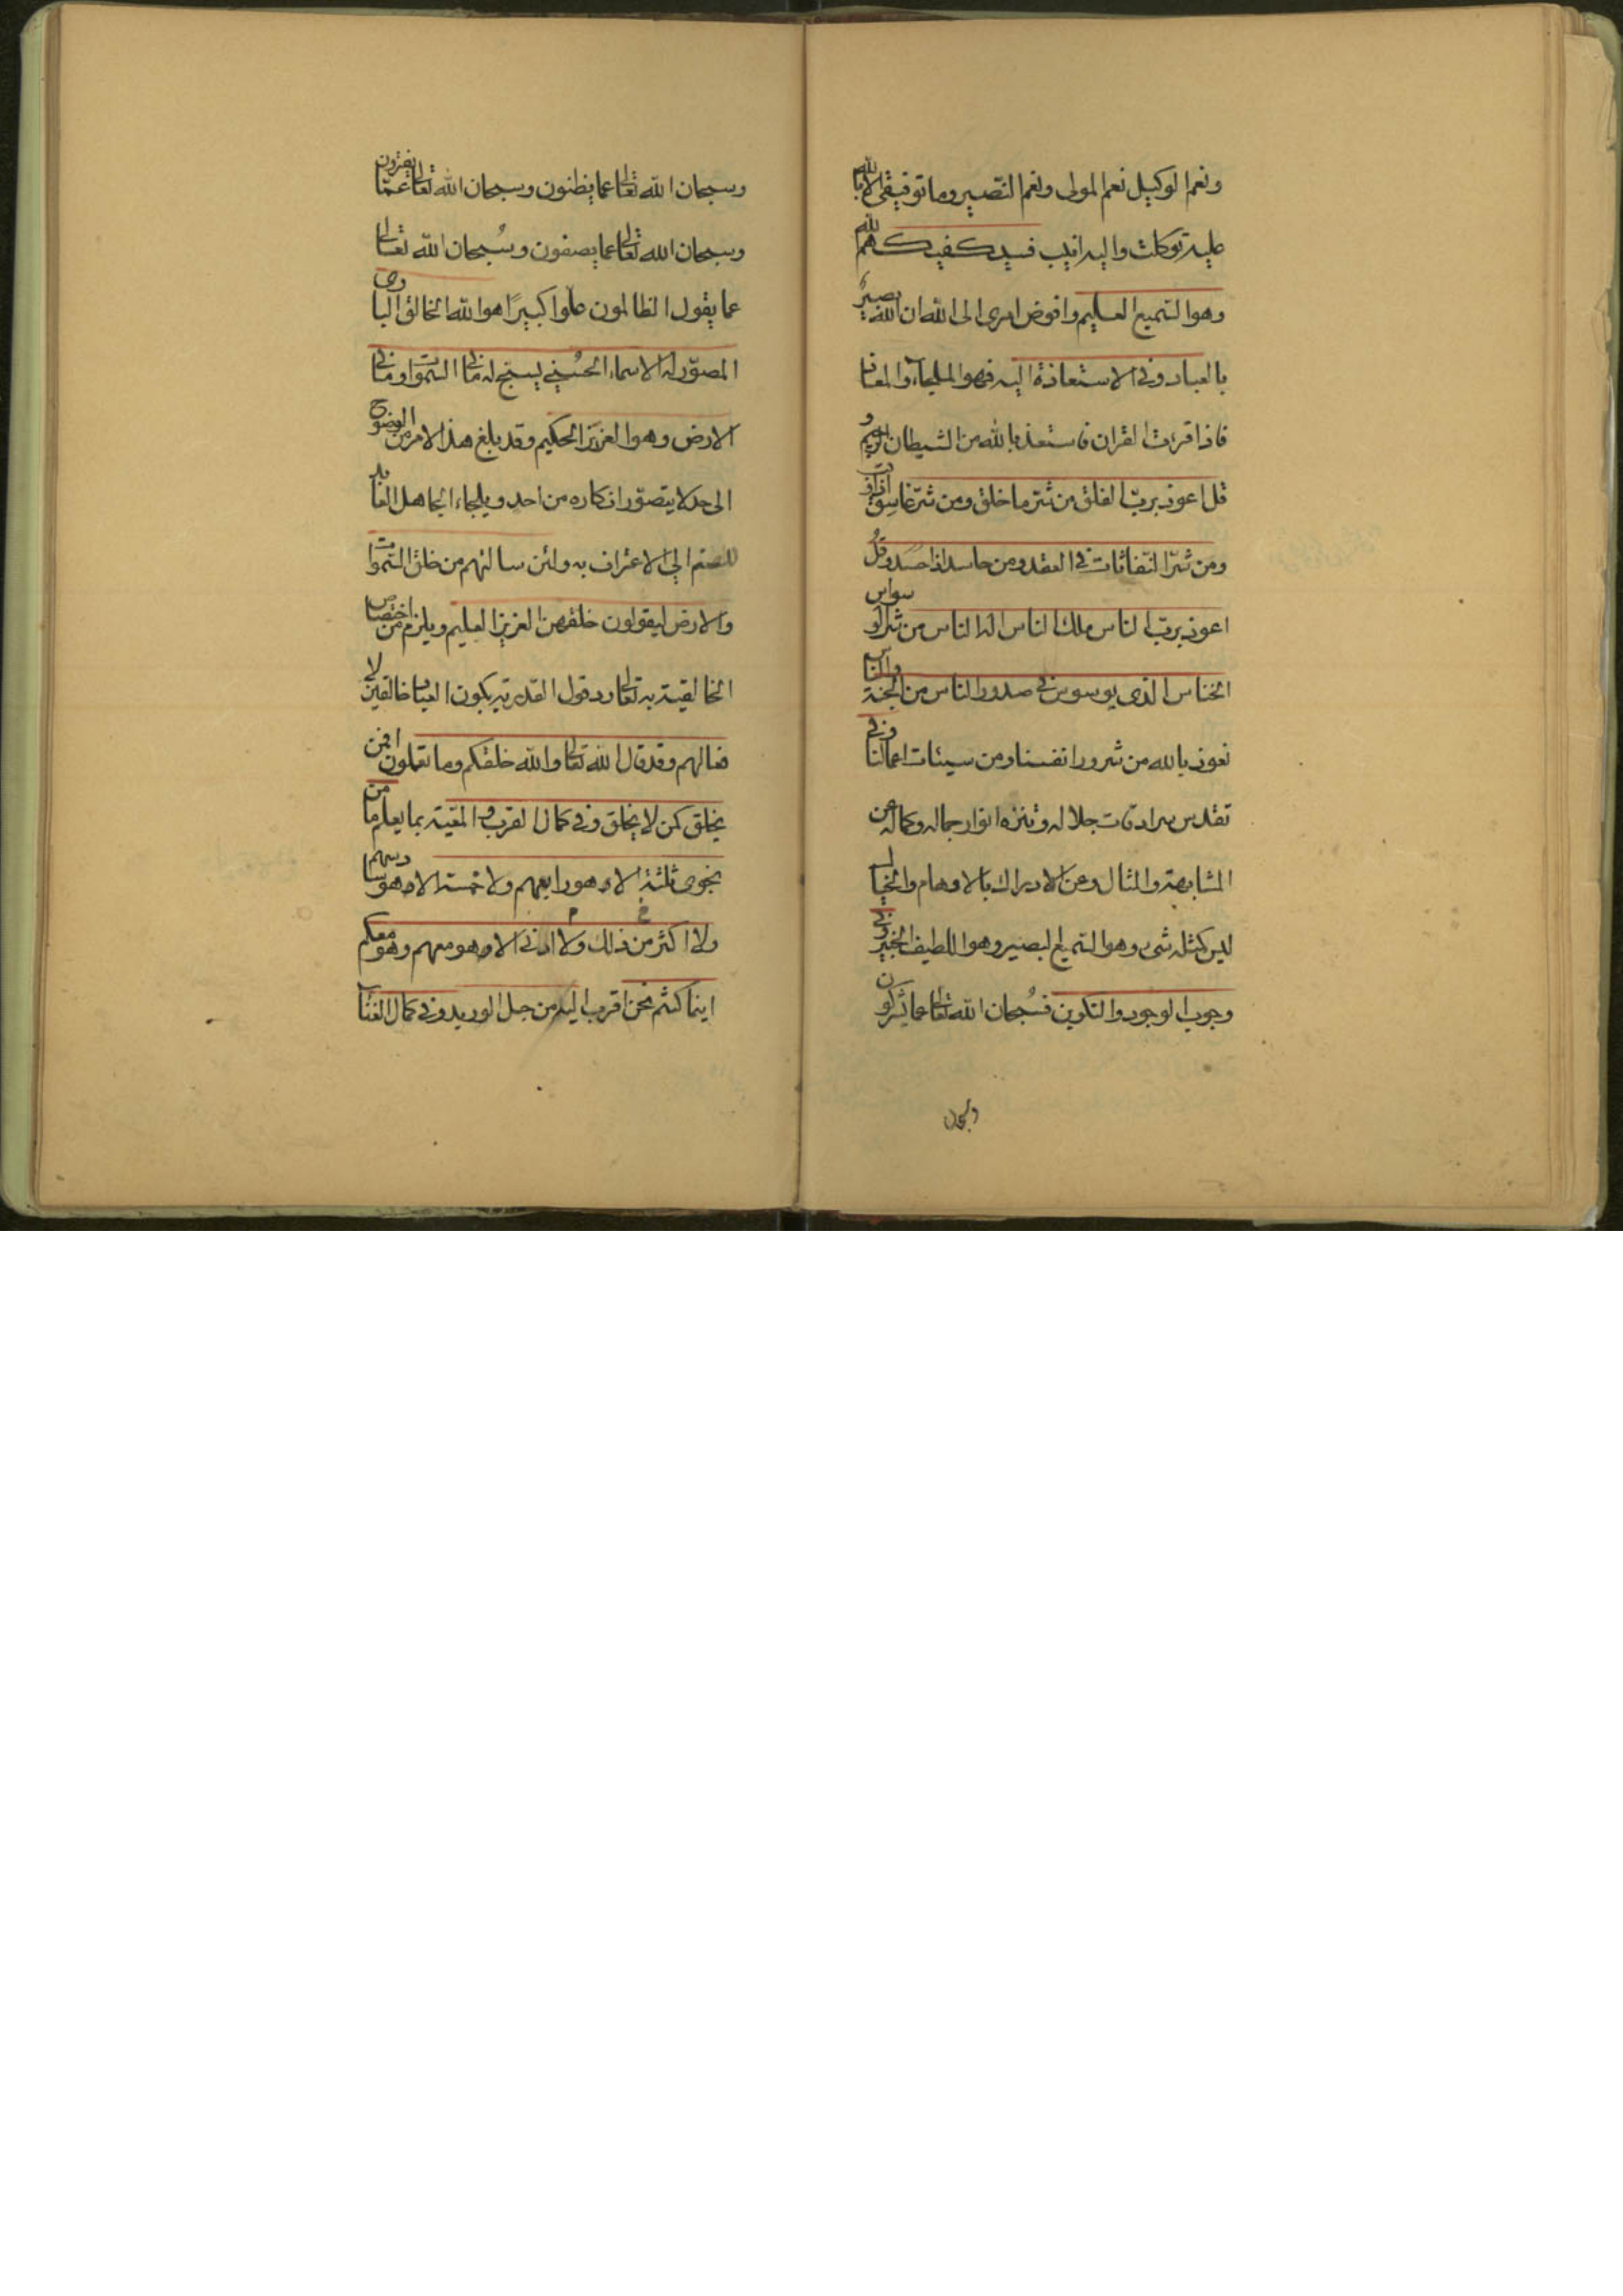 ونعم الوكيل نعم المولى ونعم النصير وما توفيقى الا بالله
عليه توكلت واليه انيب فسيكفيكهم الله
وهو السميع العليم وافوض امرى الى الله ان الله بصير
بالعباد وفى الاستعاذة اليه فهو الملجاء والمعاذ
فاذا قرئت القران فاستعذ بالله من الشيطان الرجيم و
قل اعوذ برب الفلق من شر ما خلق ومن شر غاسق اذا وقب
ومن شر النفاثات فى العقد ومن حاسد اذا حسد وقل
اعوذ برب الناس ملك الناس اله الناس من شر الوسواس
الخناس الذى يوسوس فى صدور الناس من الجنة والناس
نعوذ بالله من شرور انفسنا ومن سيئات اعمالنا وفى
تقدس سرادقات جلاله وتنزه انوار جماله وكماله عن
المشابهة والمثال وعن الادراك بالاوهام والخيال
ليس كمثله شىء وهو السميع البصير وهو اللطيف الخبير وفى
وجوب الوجود والتكوين فسبحان الله تعالى عما يشركون
وسبحان
وسبحان الله تعالى عما يظنون وسبحان الله تعالى عمّا يفترون
وسبحان الله تعالى عما يصفون وسُبحان الله تعالى
عما يقول الظالمون علوا كبيرًا هو الله الخالق البارى
المصوّر له الاسماء الحسنى يسبح له ما فى السموات وما فى
الارض وهو العزيز الحكيم وقد بلغ هذا الامر من الوضوح
الى حد لا يتصوّر انكاره من احد ويلجاء الجاهل العابد
للصنم الى الاعتراف به ولئن سالتهم من خلق السموات
والارض ليقولون خلقهن العزيز العليم ويلزم من اختصاص
الخالقية به تعالى رد قول القدرية بكون العباد خالقين لا
فعالهم وقد قال الله تعالى والله خلقكم وما تعملون افمن
يخلق كمن لا يخلق وفى كمال القرب و المعيّة بما يعلم ما من
نجوى ثلثة الا وهو رابعهم ولا خمسة الا وهو سادسهم
ولا اكثر من ذلك ولا ادنى الا وهو معهم وهو معكم
اينما كنتم نحن اقرب اليه من حبل الوريد وفى كمال الغناء